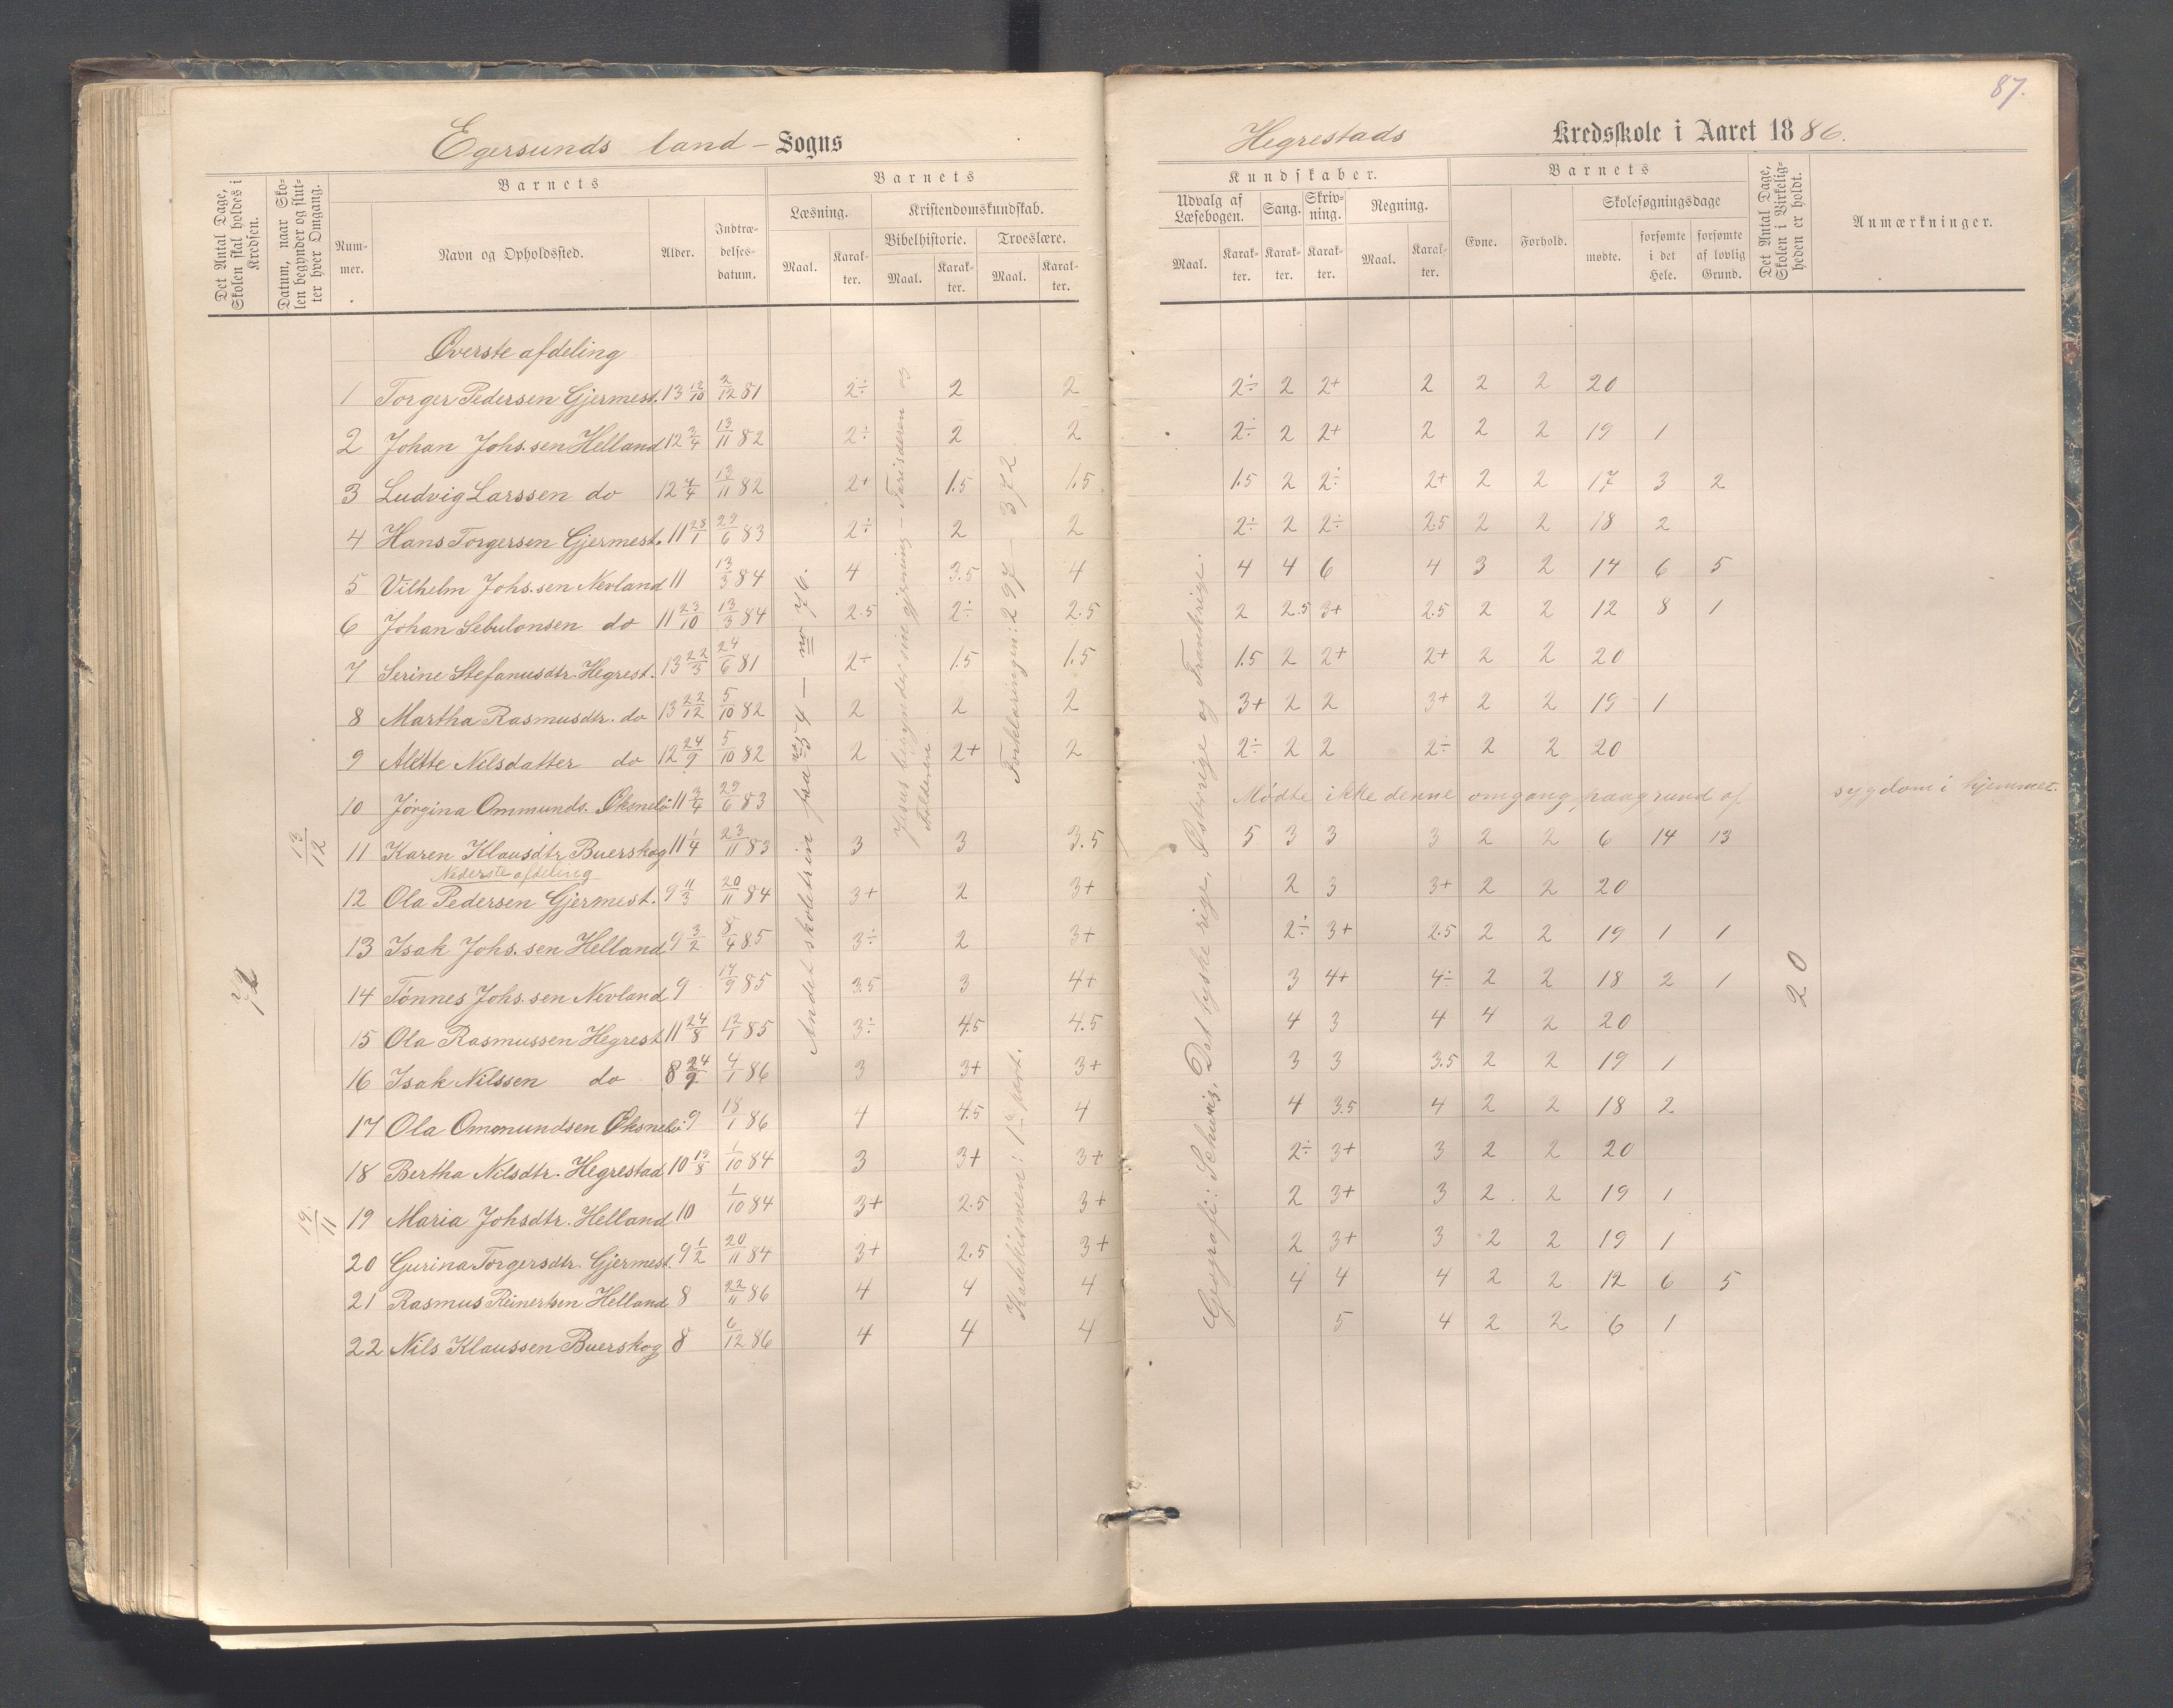 87.
Egersunds land - Sogns
Hegrestads Kredsskole i Aaret 1886.
Det Antal Dage, Skolen skal holdes i Kredsen.
Datum, naar Skolen begynder og slutter hver Omgang.
Barnets
Nummer.
Navn og Opholdssted.
Alder.
Indtrædelsesdatum.
Barnets
Læsning.
Maal.
Karakter.
Kristendomskundskab.
Bibelhistorie.
Maal.
Karakter.
Troeslære.
Maal.
Karakter.
Kundskaber.
Udvalg af Læsebogen.
Maal.
Karakter.
Sang.
Karakter.
Skrivning.
Karakter.
Regning.
Maal.
Karakter.
Barnets
Evne.
Forhold.
Skolesøgningsdage
mødte.
forsømte i det Hele.
forsømte af lovlig Grund.
Det Antal Dage, Skolen i Virkeligheden er holdt.
Anmærkninger.
Øverste afdeling
1 Torger Pedersen Gjermest. 13 12/10 2/12 81 2÷ 2 2 2÷ 2 2+ 2 2 2 20
2 Johan Johs.sen Helland 12 3/4 13/11 82 2÷ 2 2 2÷ 2 2+ 2 2 2 19 1
3 Ludvig Larssen do 12 4/4 13/11 82 2+ 1.5 1.5 1.5 2 2÷ 2+ 2 2 17 3 2
4 Hans Torgersen Gjermest. 11 28/1 29/6 83 2÷ 2 2 2÷ 2 2÷ 2.5 2 2 18 2
5 Vilhelm Johs.sen Nevland 11 13/3 84 4 3.5 4 4 4 6 4 3 2 14 6 5
6 Johan Sebulonsen do 11 23/10 13/3 84 2.5 2÷ 2.5 2 2.5 3+ 2.5 2 2 12 8 1
7 Serine Stefanusdtr. Hegrest. 13 22/3 24/6 81 2÷ 1.5 1.5 1.5 2 2+ 2+ 2 2 20
8 Martha Rasmusdtr. do 13 22/12 5/10 82 2 2 2 3+ 2 2 3+ 2 2 19 1
9 Alette Nilsdatter do 12 24/9 5/10 82 2 2+ 2 2÷ 2 2 2÷ 2 2 20
10 Jørgina Ommunds. Øksnelø 11 3/4 29/6 83 Mødte ikke denne omgang paa grund af sygdom i hjemmet.
11 Karen Klausdtr Buerskog 11 1/4 23/11 83 3 3 3.5 5 3 3 3 2 2 6 14 13
Nederste afdeling
12 Ola Pedersen Gjermest. 9 11/3 20/11 84 3+ 2 3+ 2 3 3+ 2 2 20
13 Isak Johs.sen Helland 9 3/2 8/4 85 3÷ 2 3+ 2÷ 3+ 2.5 2 2 19 1 1
14 Tønnes Johs.sen Nevland 9 17/9 85 3.5 3 4+ 3 4+ 4÷ 2 2 18 2 1
15 Ola Rasmussen Hegrest 11 24/8 12/1 85 3÷ 4.5 4.5 4 3 4 4 2 20
16 Isak Nilssen do 8 24/9 4/1 86 3 3+ 3+ 3 3 3.5 2 2 19 1
17 Ola Ommundsen Øksnelø 9 18/1 86 4 4.5 4 4 3.5 4 2 2 18 2
18 Bertha Nilsdtr. Hegrestad 10 19/8 1/10 84 3 3+ 3+ 2÷ 3+ 3 2 2 20
19 Maria Johsdtr. Helland 10 1/10 84 3+ 2.5 3+ 2 3+ 3 2 2 19 1
20 Gurina Torgersdtr. Gjermest. 9 1/2 20/11 84 3+ 2.5 3+ 2 3+ 3 2 2 19 1
21 Rasmus Reinertsen Helland 8 22/11 86 4 4 4 4 4 4 2 2 12 6 5
22 Nils Klaussen Buerskog 8 6/12 86 4 4 4 5 4 2 2 6 1
72
19/11
13/12
Andet skoletrin fra no 54 — no 76.
Jesus begynder sin gjerning - Farisæeren og Tolderen.
Forklaringen: 297 — 372
Katekismen: 1ste part.
Geografi: Schweiz, Det tyske rige, Østerrige og Frankrige.
20